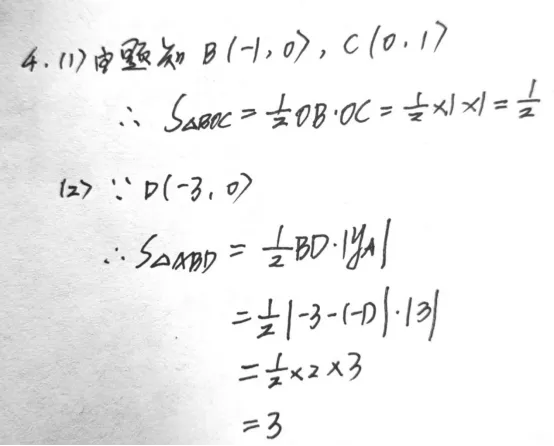 4. (1) 由题知 B(-1, 0), C(0, 1)
∴ S△BOC = 1/2 OB·OC = 1/2 × 1 × 1 = 1/2
(2) ∵ D(-3, 0)
∴ S△ABD = 1/2 BD·|yA|
= 1/2 |-3-(-1)|·|3|
= 1/2 × 2 × 3
= 3